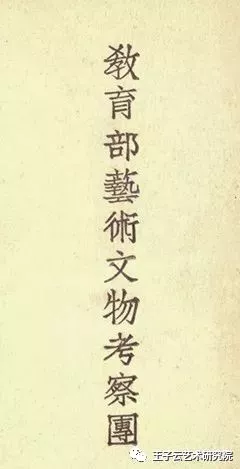 教育部藝術文物考察團
王子云艺术研究院